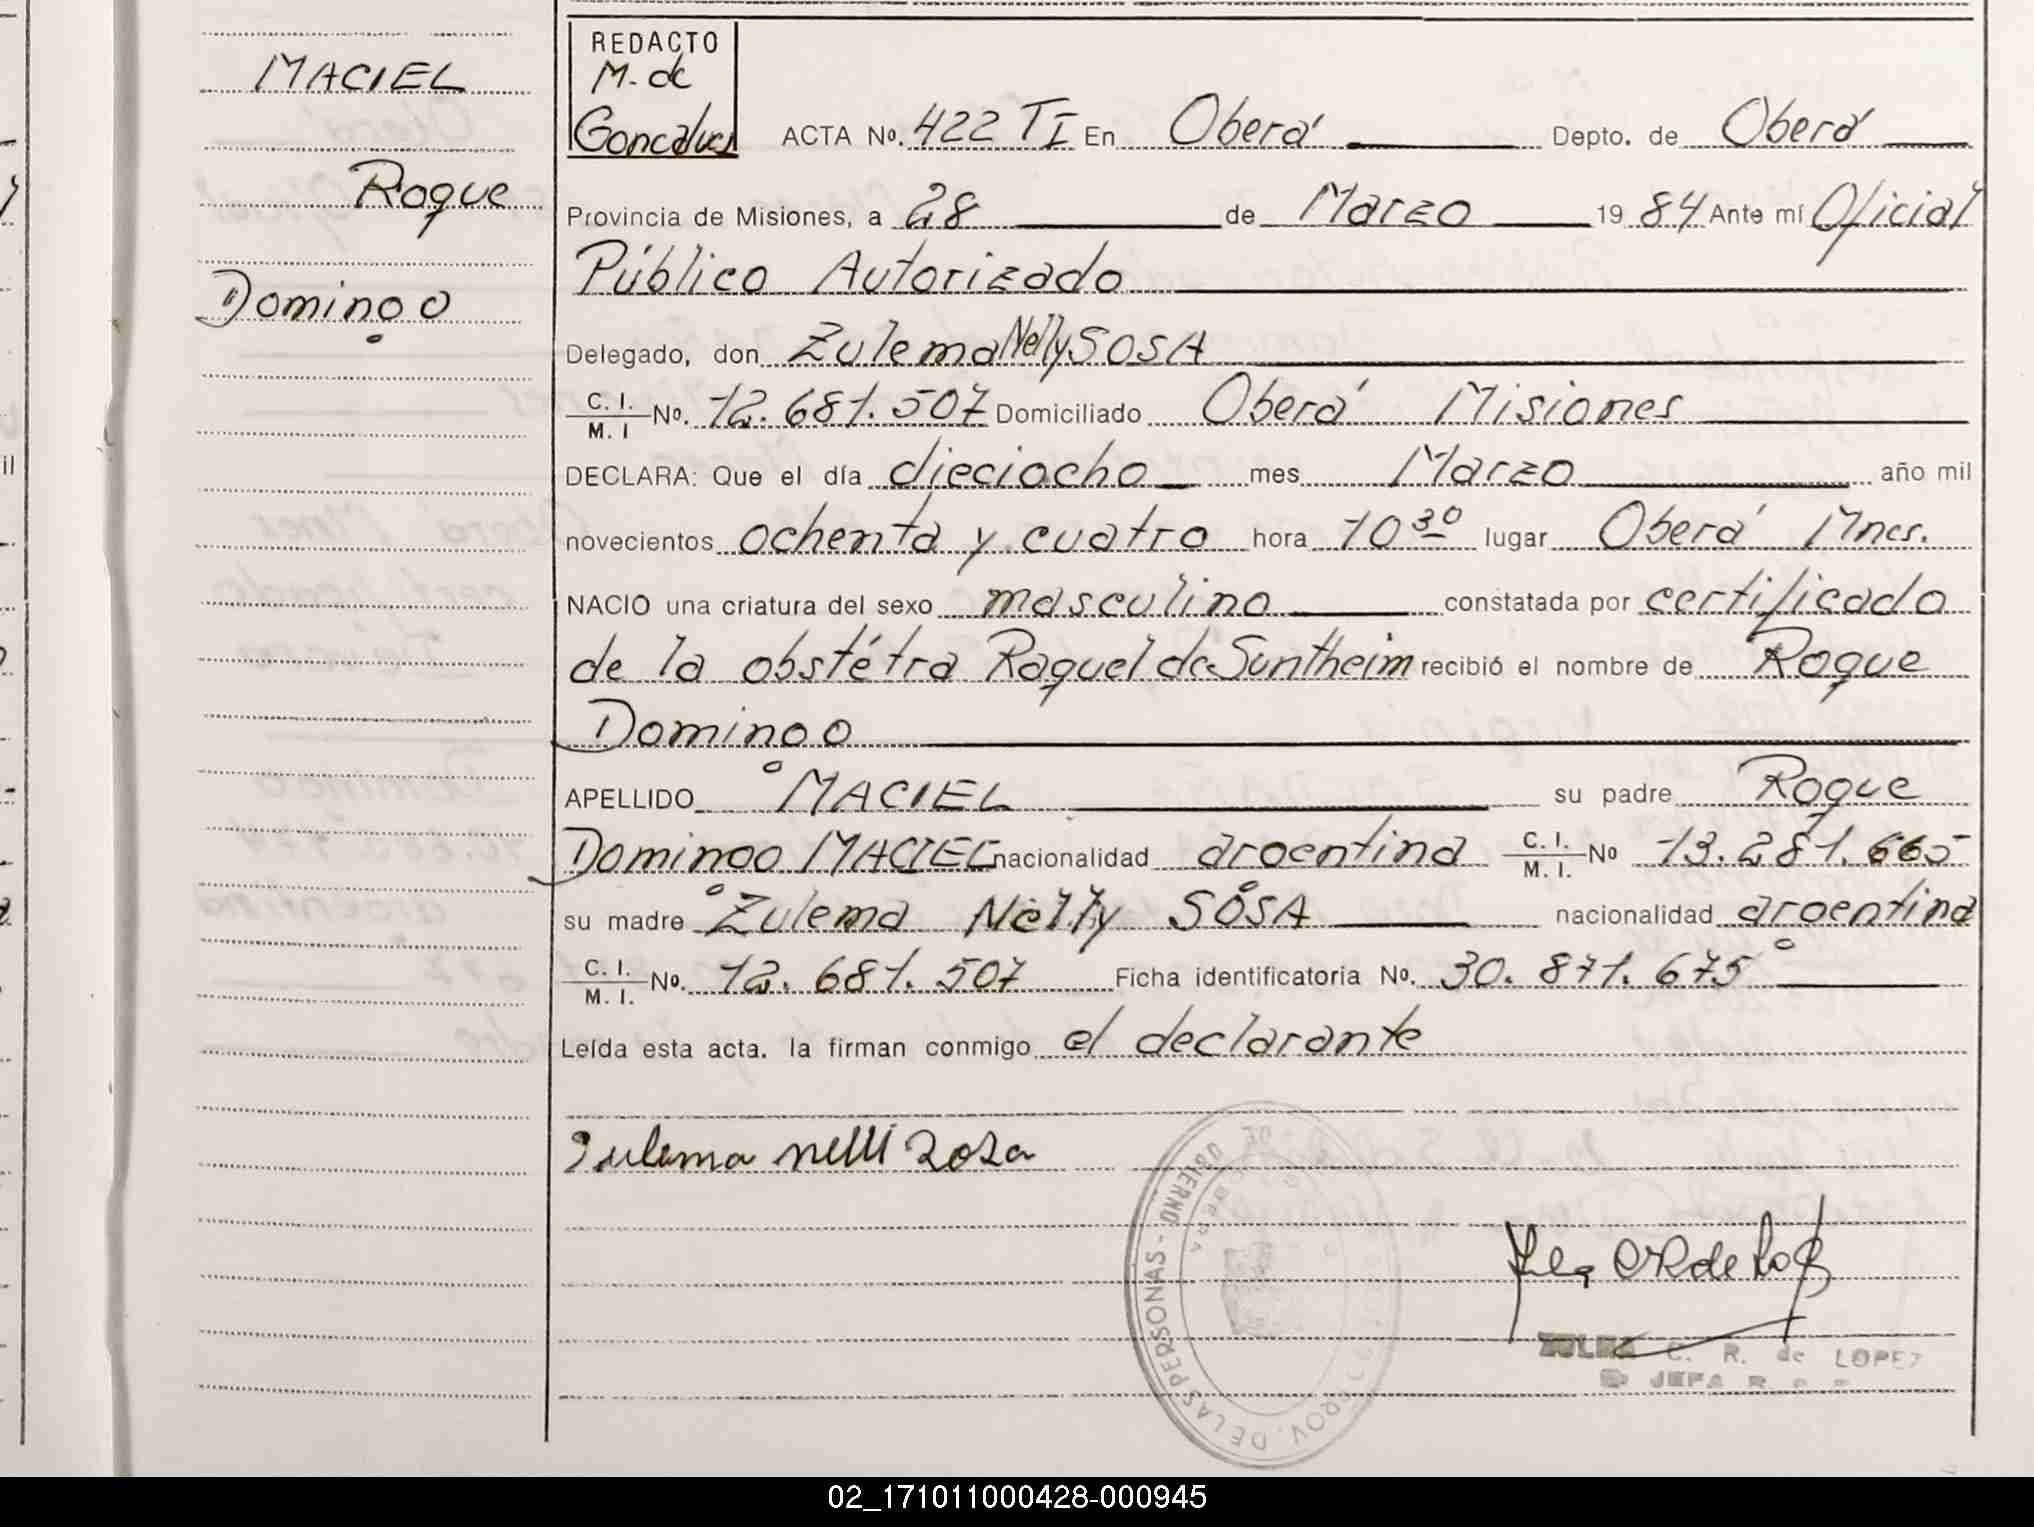 MACIEL
Roque
Domingo
REDACTO
M. de
Goncalves
ACTA Nº. 422 TI En Oberá Depto. de Oberá
Provincia de Misiones, a 28 de Marzo 19 84 Ante mí Oficial
Público Autorizado
Delegado, don Zulema Nelly SOSA
C. I.
M. I Nº. 12.681.507 Domiciliado Oberá Misiones
DECLARA: Que el día dieciocho mes Marzo año mil
novecientos ochenta y cuatro hora 10 30 lugar Oberá Mnes.
NACIO una criatura del sexo masculino constatada por certificado
de la obstétra Raquel de Suntheim recibió el nombre de Roque
Domingo
APELLIDO MACIEL su padre Roque
Domingo MACIEL nacionalidad argentina C. I. M. I. Nº 13.281.665
su madre Zulema Nelly SOSA nacionalidad argentina
C. I.
M. I. Nº. 12.681.507 Ficha identificatoria Nº. 30.871.675
Leída esta acta. la firman conmigo el declarante
Zulema nelli Zosa
GOBIERNO DE
PROV. DE LAS PERSONAS -
OBERA
C. R. de LOPEZ
JEFA R.
02_171011000428-000945